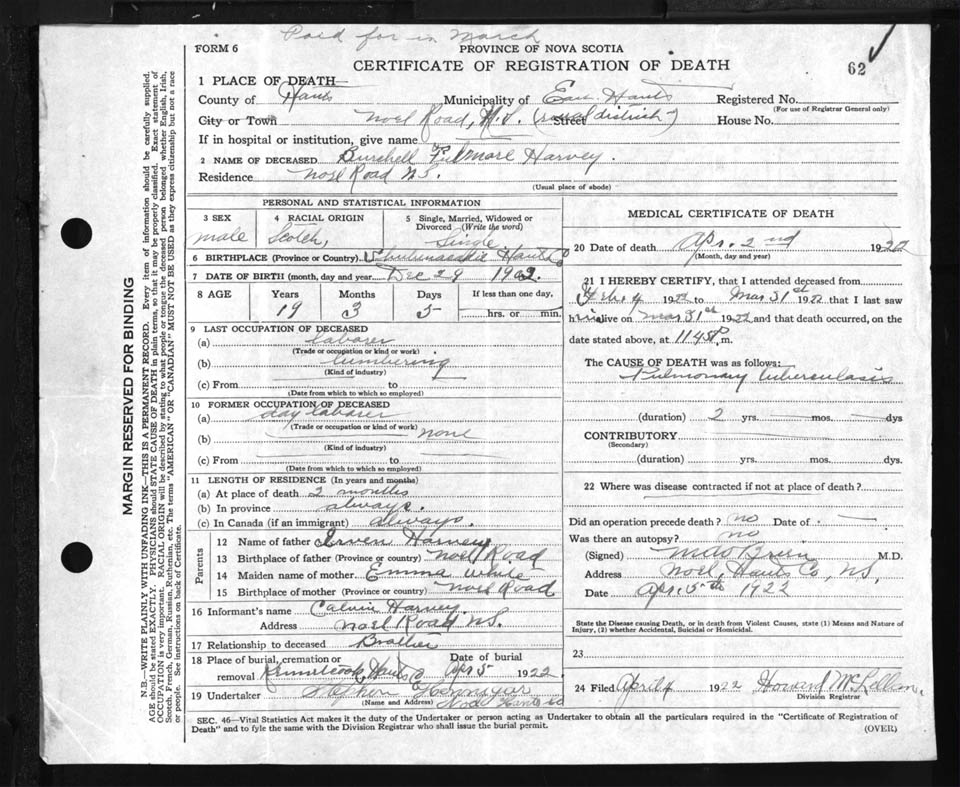 Paid for in March
FORM 6
PROVINCE OF NOVA SCOTIA
62
CERTIFICATE OF REGISTRATION OF DEATH
1 PLACE OF DEATH
County of Hants Municipality of East Hants Registered No.
(For use of Registrar General only)
City or Town Noel Road, N.S. (rural district) Street House No.
If in hospital or institution, give name
2 NAME OF DECEASED Burchell Fulmore Harvey.
Residence Noel Road N.S.
(Usual place of abode)
PERSONAL AND STATISTICAL INFORMATION
3 SEX
male
4 RACIAL ORIGIN
Scotch,
5 Single, Married, Widowed or
Divorced (Write the word)
Single
6 BIRTHPLACE (Province or Country) Shubenacadie Hants Co
7 DATE OF BIRTH (month, day and year) Dec 29 1902.
8 AGE Years Months Days If less than one day,
19 3 5 hrs. or min.
9 LAST OCCUPATION OF DECEASED
(a) laborer
(Trade or occupation or kind or work)
(b) lumbering
(Kind of industry)
(c) From to
(Date from which to which so employed)
10 FORMER OCCUPATION OF DECEASED
(a) day laborer
(Trade or occupation or kind of work)
(b) none
(Kind of industry)
(c) From to
(Date from which to which so employed)
11 LENGTH OF RESIDENCE (In years and months)
(a) At place of death 2 months
(b) In province always.
(c) In Canada (if an immigrant) always.
Parents
12 Name of father Erven Harvey
13 Birthplace of father (Province or country) Noel Road
14 Maiden name of mother Emma White
15 Birthplace of mother (Province or country) Noel Road
16 Informant's name Calvin Harvey.
Address Noel Road N.S.
17 Relationship to deceased Brother
18 Place of burial, cremation or
removal Kennetcook, Hants Co
Date of burial
Apr 5 1922.
19 Undertaker Stephen
(Name and Address) Noel Hants Co
MEDICAL CERTIFICATE OF DEATH
20 Date of death Apr. 2nd 1922
(Month, day and year)
21 I HEREBY CERTIFY, that I attended deceased from
Feb 4 1922 to Mar 31st 1922 that I last saw
him alive on Mar 31st 1922 and that death occurred, on
date stated above, at 11 45 P m.
The CAUSE OF DEATH was as follows:
Pulmonary tuberculosis
(duration) 2 yrs. mos. dys
CONTRIBUTORY
(Secondary)
(duration) yrs. mos. dys.
22 Where was disease contracted if not at place of death?
Did an operation precede death? no Date of
Was there an autopsy? no.
(Signed) M.D.
Address Noel, Hants Co, N.S.
Date Apr. 5th 1922
State the Disease causing Death, or in death from Violent Causes, state (1) Means and Nature of
Injury, (2) whether Accidental, Suicidal or Homicidal.
23
24 Filed April 4 1922 Howard McLellan.
Division Registrar
SEC. 46—Vital Statistics Act makes it the duty of the Undertaker or person acting as Undertaker to obtain all the particulars required in the "Certificate of Registration of
Death" and to fyle the same with the Division Registrar who shall issue the burial permit.
(OVER)
MARGIN RESERVED FOR BINDING
N.B.—WRITE PLAINLY WITH UNFADING INK—THIS IS A PERMANENT RECORD. Every item of information should be carefully supplied.
AGE should be stated EXACTLY. PHYSICIANS should STATE CAUSE OF DEATH in plain terms, so that it may be properly classified. Exact statement of
OCCUPATION is very important. RACIAL ORIGIN will be described by stating to what people or tongue the deceased person belonged whether English, Irish,
Scotch, French, German, Russian, Ruthenian, etc. The terms "AMERICAN" or "CANADIAN" MUST NOT BE USED as they express citizenship but not a race
or people. See instructions on back of Certificate.